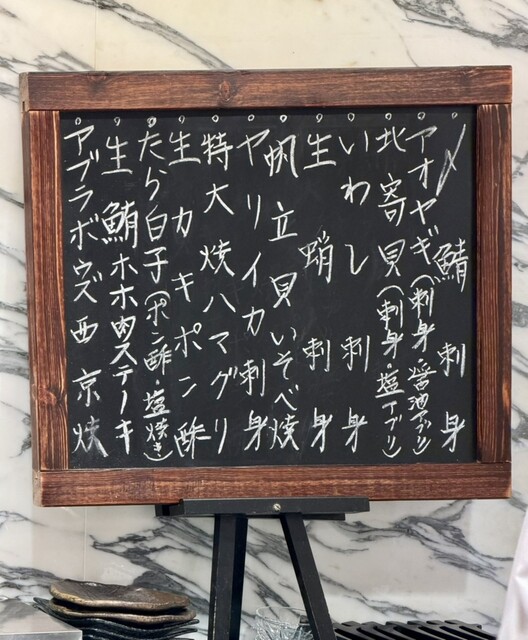 。〆鯖刺身
。アオヤギ(刺身・醤油アブリ)
。北寄貝(刺身・塩アブリ)
。いわし刺身
。生蛸刺身
。帆立貝いそべ焼
。ヤリイカ刺身
。特大焼ハマグリ
。生カキポン酢
。たら白子(ポン酢・塩焼き)
。生鮪ホホ肉ステーキ
。アブラボウズ西京焼